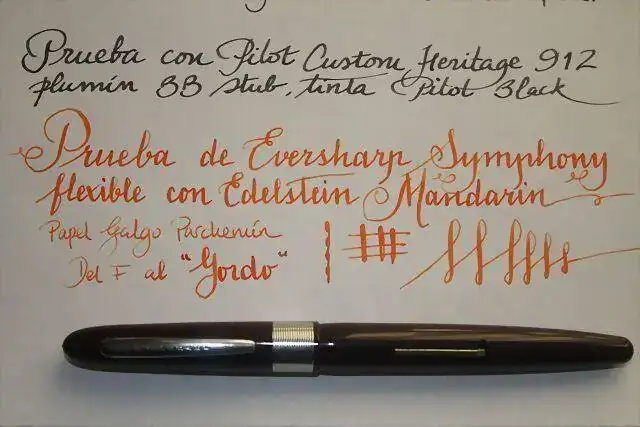 Prueba con Pilot Custom Heritage 912
plumín BB stub, tinta Pilot Black
Prueba de Eversharp Symphony
flexible con Edelstein Mandarin
Papel Galgo Parchemin
Del F al "Gordo"